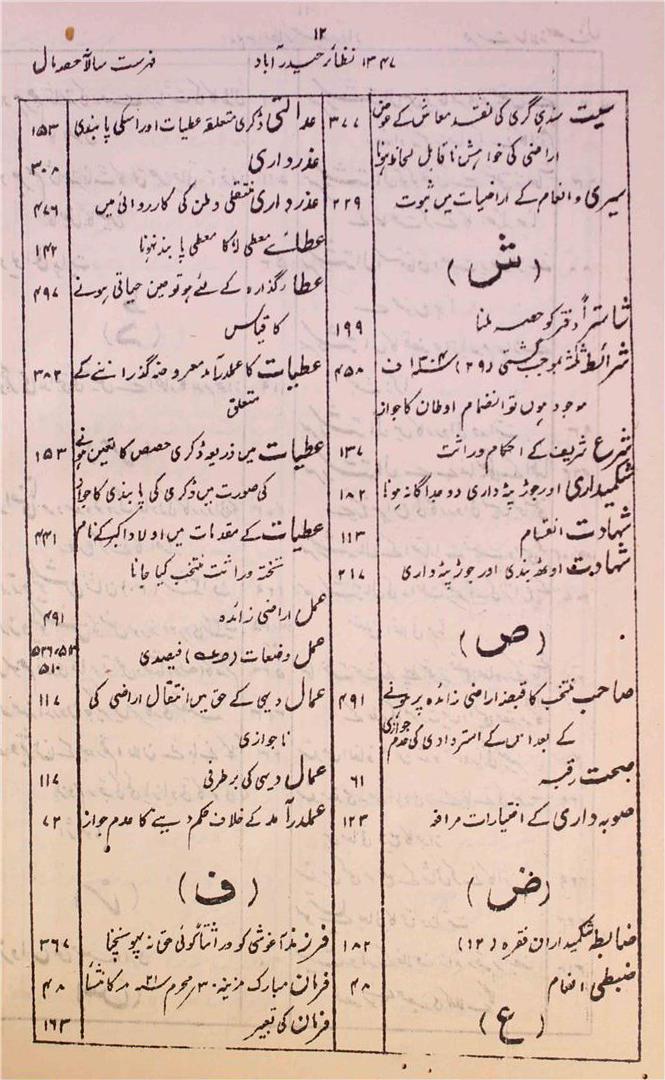 ۱۲
۱۳۴۷ نظائر حیدرآباد فہرست سالانہ مال
سیت سندہی گری کی نقد معاش کے عوض ۳۷۷
اراضی کی خواہش ناقابل لحاظ ہونا
سیری و انعام کے اراضیات میں ثبوت ۲۲۹
(ش)
شاستراً دختر کو حصہ ملنا ۱۹۹
شرائط ثلثہ بموجب گشتی (۲۹) ۱۳۰۴ ف ۴۵۸
موجود ہوں تو انضمام اوطان کا جواز
شرع شریف کے احکام وراثت ۱۳۷
شکمیداری اور جوڑ پٹہ داری دو جداگانہ ہونا ۱۸۲
شہادت انقسام ۱۱۳
شہادت اوٹھ بندی اور جوڑ پٹہ داری ۲۱۷
(ص)
صاحب منتخب کا قبضہ اراضی زائدہ پر ہونے ۴۹۱
کے بعد اس کے استردادی کی عدم جوازی
صحت رقبہ ۶۱
صوبہ داری کے اختیارات مرافعہ ۱۲۳
(ض)
ضابطہ شکمیداران فقرہ (۱۲) ۱۸۲
ضبطی انعام ۴۸
(ع)
عدالتی ڈگری متعلقہ عطیات اور اسکی پابندی ۱۵۳
عذرداری ۳۰۸
عذرداری منتقلی وطن کی کارروائی میں ۴۷۶
عطائے معطی لہٗ کا معطی پابند نہونا ۱۴۲
عطا گذارہ کے لئے ہو تو حین حیاتی ہونے ۴۹۷
کا قیاس
عطیات کا عملدرآمد معروضہ گذراننے کے ۳۸۲
متعلق
عطیات میں ذریعہ ڈگری حصص کا تعین ہونے ۱۵۳
کی صورت میں ڈگری کی پابندی کا جواز
عطیات کے مقدمات میں اولاد اکبر کے نام ۴۴۱
تختہ وراثت منتخب کیا جانا
عمل اراضی زائدہ ۴۹۱
عمل وضعات فیصدی
۵۱۰
عمال دیہی کے حق میں انتقال اراضی کی ۱۱۷
ناجوازی
عمال دیہی کی برطرفی ۱۱۷
عملدرآمد کے خلاف حکم دینے کا عدم جواز ۷۲
(ف)
فرزند آغوشی کو وراثتاً کوئی حق نہ پہونچنا ۳۶۷
فرمان مبارک مزینہ ۳۰ محرم کا منشأ ۴۸
فرمان کی تعبیر ۱۶۳